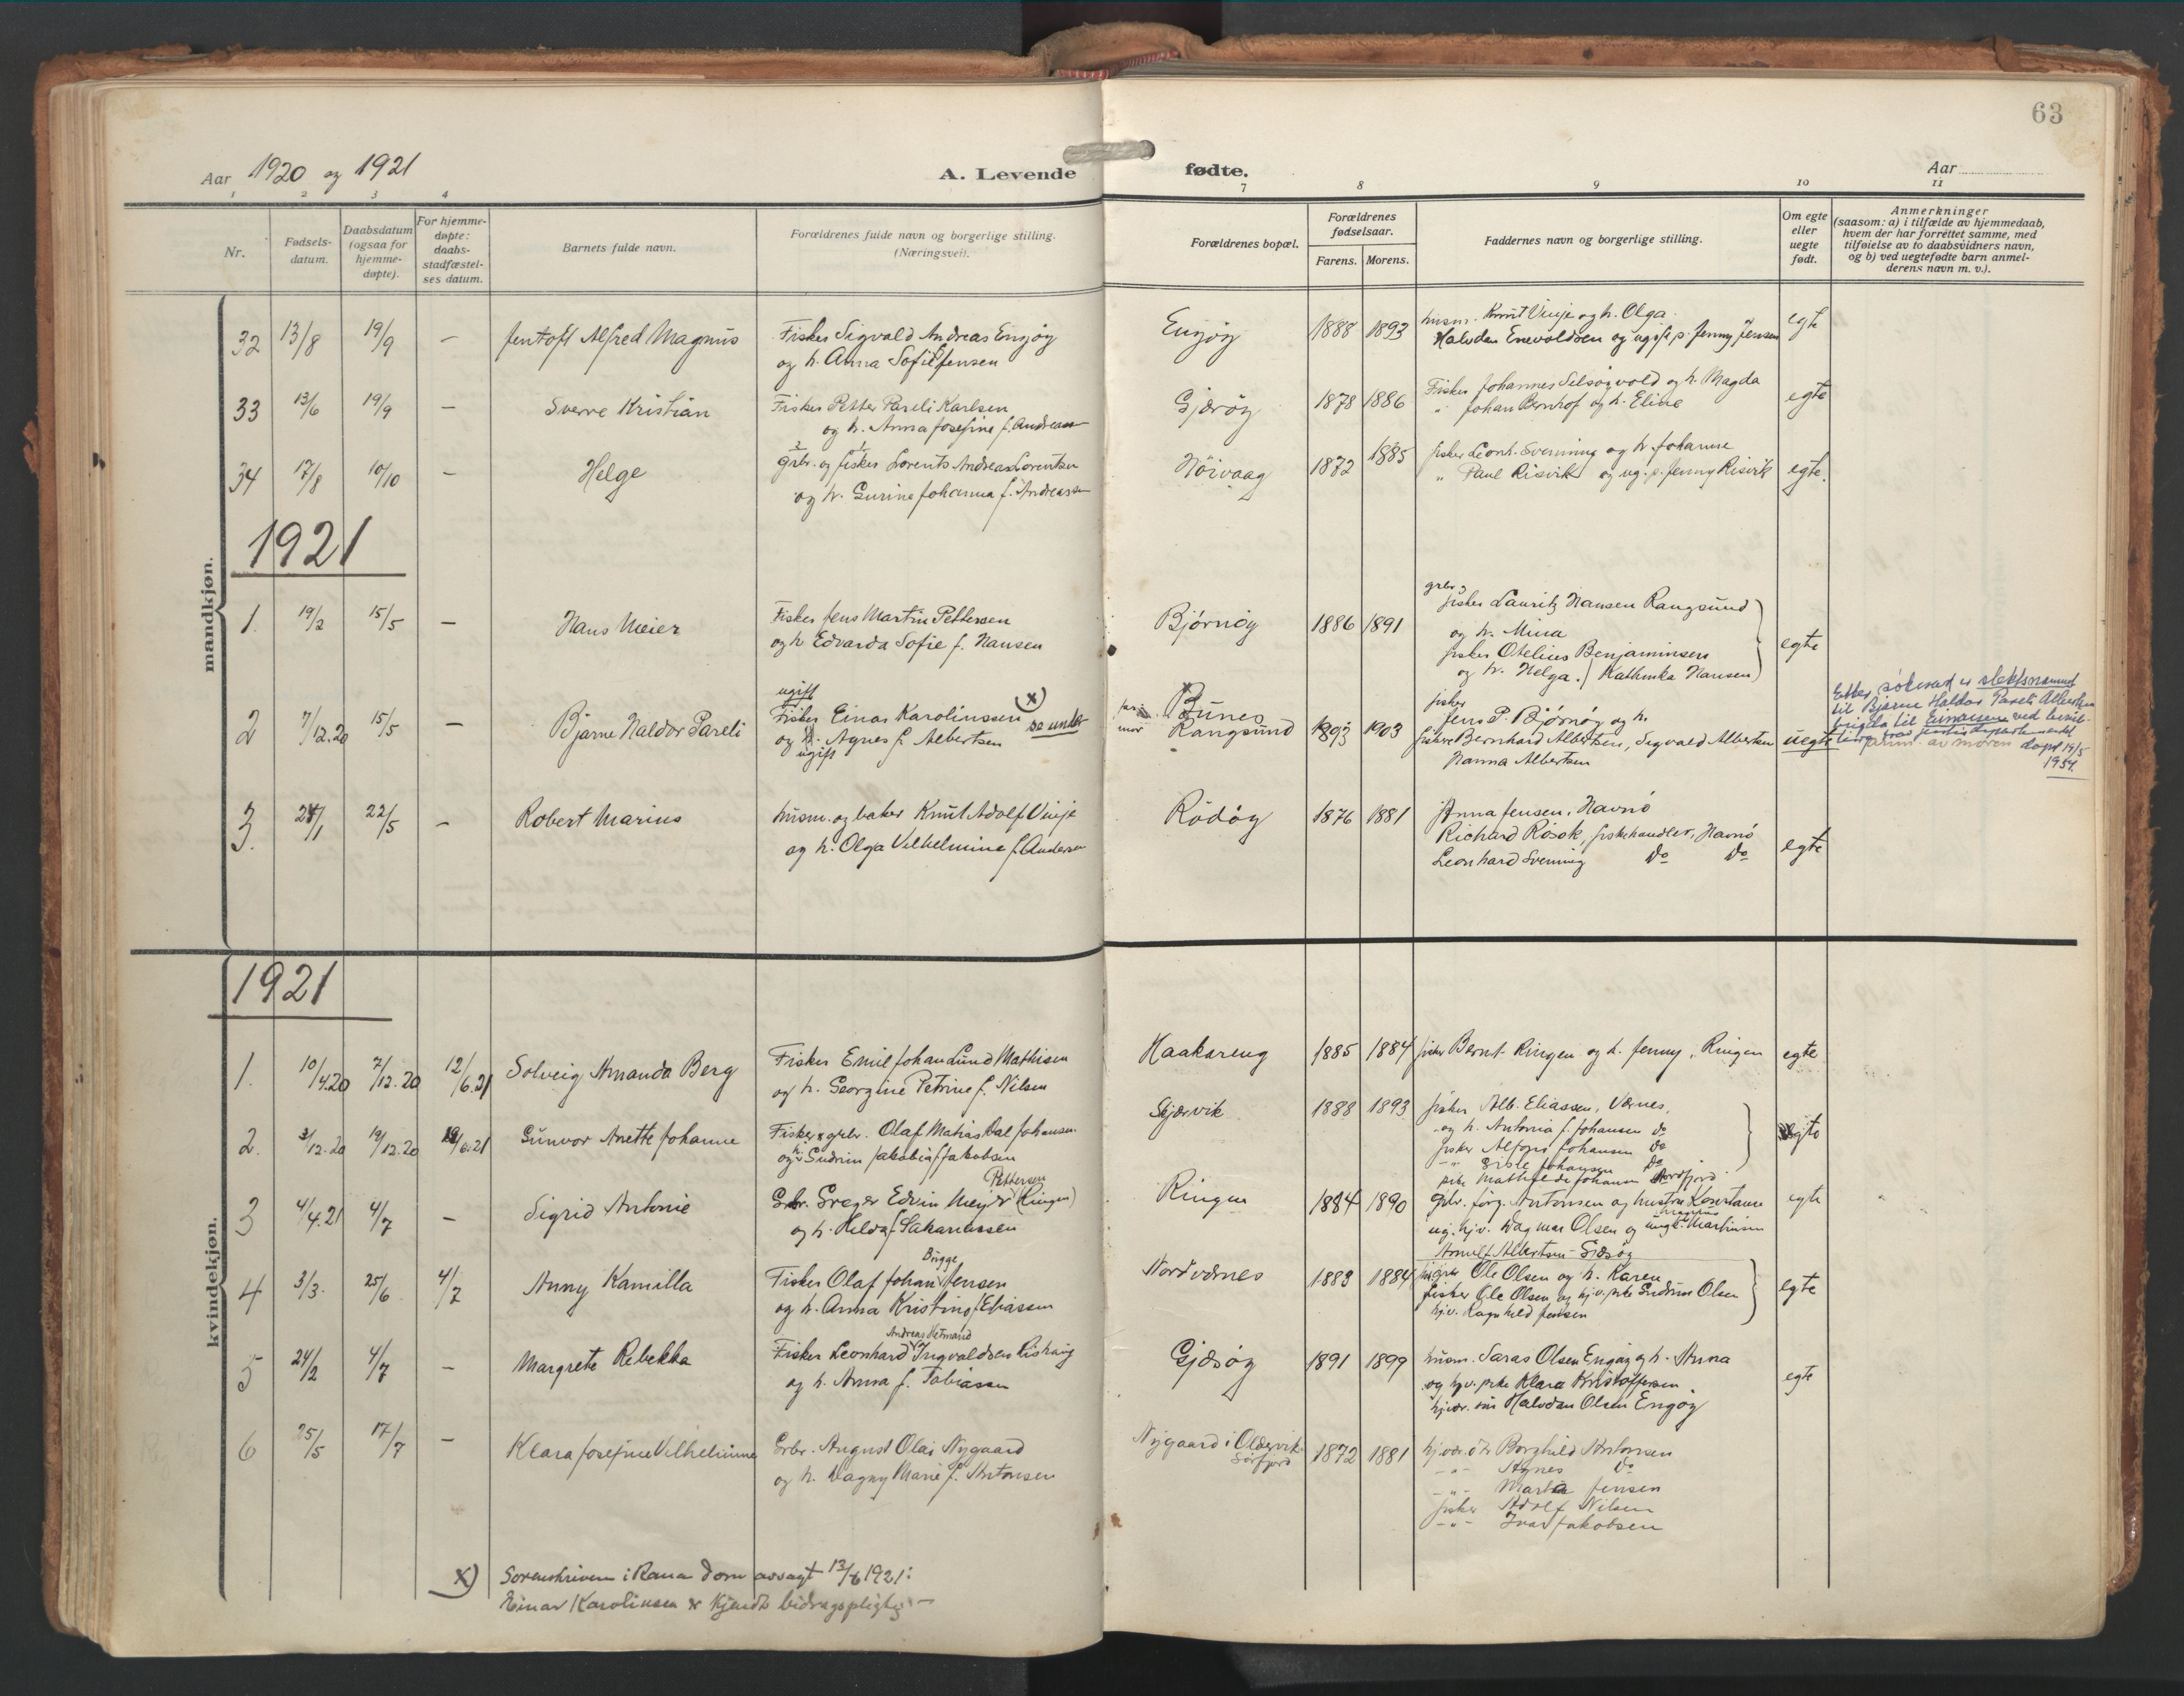 63
Aar 1920 og 1921
A. Levende fødte.
Aar
1 2 3 4 7 8 9 10 11
Nr.
Fødsels-datum.
Daabsdatum (ogsaa for hjemme-døpte).
For hjemme-døpte: daabs-stadfæstel-ses datum.
Barnets fulde navn.
Forældrenes fulde navn og borgerlige stilling. (Næringsvei).
Forældrenes bopæl.
Forældrenes fødselsaar.
Farens. Morens.
Faddernes navn og borgerlige stilling.
Om egte eller uegte født.
Anmerkninger (saasom: a) i tilfælde av hjemmedaab, hvem der har forrettet samme, med tilføielse av to daabsvidners navn, og b) ved uegtefødte barn anmel-derens navn m. v.).
mandkjøn.
32 13/8 19/9 — Jentoft Alfred Magnus
Fisker Sigvald Andreas Engøy
og h. Anna Sofie Jensen
Engøy 1888 1893
husm. Knut Vinje og h. Olga
Halvdan Enevoldsen og ugift p. Jenny Jensen
egte
33 13/6 19/9 — Sverre Kristian
Fisker Petter Pareli Karlsen
og h. Anna Josefine f. Andreassen
Gjærøy 1878 1886
Fisker Johannes Selsøyvold og h. Magda
" Johan Bernhof og h. Eline
egte
34 17/8 10/10 — Helge
grbr. og fisker Lorents Andreas Lorentsen
og h. Gurine Johanna f. Andreassen
Nöivaag 1872 1885
fisker Leonh. Svenning og h. Johanne
" Paul Risvik og ug. p. Jenny Risvik
egte.
1921
1. 19/2 15/5 — Hans Meier
Fisker Jens Martin Pettersen
og h Edvarda Sofie f. Hansen
Bjørnøy 1886 1891
grbr.
fisker Lauritz Hansen Rangsund
og h. Mina
fisker Otelius Benjaminsen
og h. Helga. Kathinka Hansen
egte
2 7/12.20 15/5 — Bjarne Haldor Pareli
ugift
Fisker Einar Karolinssen x) se under
og Agnes f. Albertsen
ugift
x Bunes
mor Rangsund 1893 1903
fisker
Jens P. Bjørnøy og h.
fiskere Bernhard Albertsen, Sigvald Albertsen
Hanna Albertsen
uegte
Etter søknad er slektsnavnet
til Bjarne Haldor Pareli Albertsen
til Einarsen ved
anm. av moren dept 19/5
1954.
3. 24/1 22/5 — Robert Marius
husm. og baker Knut Adolf Vinje
og h. Olga Vilhelmine f. Andersen
Rödöy 1876 1881
Anna Jensen, Havnö
Richard Rösok, fiskehandler, Havnö
Leonhard Svenning Do Do
egte
kvindekjøn.
1921
1. 10/4.20 7/12.20 12/6.21 Solveig Amanda Berg
Fisker Emil Johan Lund Mathisen
og h. Georgine Petrine f. Nilsen
Haakareng 1885 1884
fisker Bernt Ringen og h. Jenny, Ringen
egte
2. 3/12.20 19/12.20 /6.21 Gunvor Anette Johanne
Fisker & grbr. Olaf Matias Dal Johansen
og h. Gudrun Jakobia f Jakobsen
Skjærvik 1888 1893
fisker Alb. Eliassen, Værnes,
og h. Antonia f. Johansen do
fisker Johansen Do
Johansen Do
pike Mathilde Johansen Nordfjord
egte
3 4/4.21 4/7 — Sigrid Antonie
Pettersen
Grbr. Greger Edvin Meyer (Ringen)
og h. Helda f. Sakariassen
Ringen 1884 1890
Grbr. Jørg. Antonsen og hustru Konstanse
ug. hjv. Dagmar Olsen og ungk. Martinsen
Arnulf Albertsen
egte
4 3/3. 25/6 4/7 Anny Kamilla
Brygge
Fisker Olaf Johan Jensen
og h. Anna Kristine f Eliassen
Nordværnes 1883 1884
Ole Olsen og h. Karen
fisker Ole Olsen og hjv. pike Gudrun Olsen
hjv. Ragnhild Jensen
egte
5 24/2 4/7 — Margrete Rebekka
Andreas Hetmand
Fisker Leonhard Ingvaldsen Rishaug
og h. Anna f. Tobiassen
Gjæsøy 1891 1899
husm. Saras Olsen Engøy og h. Anna
og hjv. pike Klara Kristoffersen
hjvær. sön Halvdan Olsen Engøy
egte
6 25/5 17/7 — Klara Josefine Vilhelmine
Grbr. August Olai Nygaard
og h. Dagny Marie f. Antonsen
Nygaard i Oldervik
Sørfjord 1872 1881
hjvær. d. Borghild Antonsen
—"— Agnes Do
—"— Marta Jensen
fisker Adolf Nilsen
—"— Ivar Jakobsen
x) Sorenskriveren i Rana dom avsagt 13/6 1921:
Einar Karolinsen er kjendt bidragspligtig —